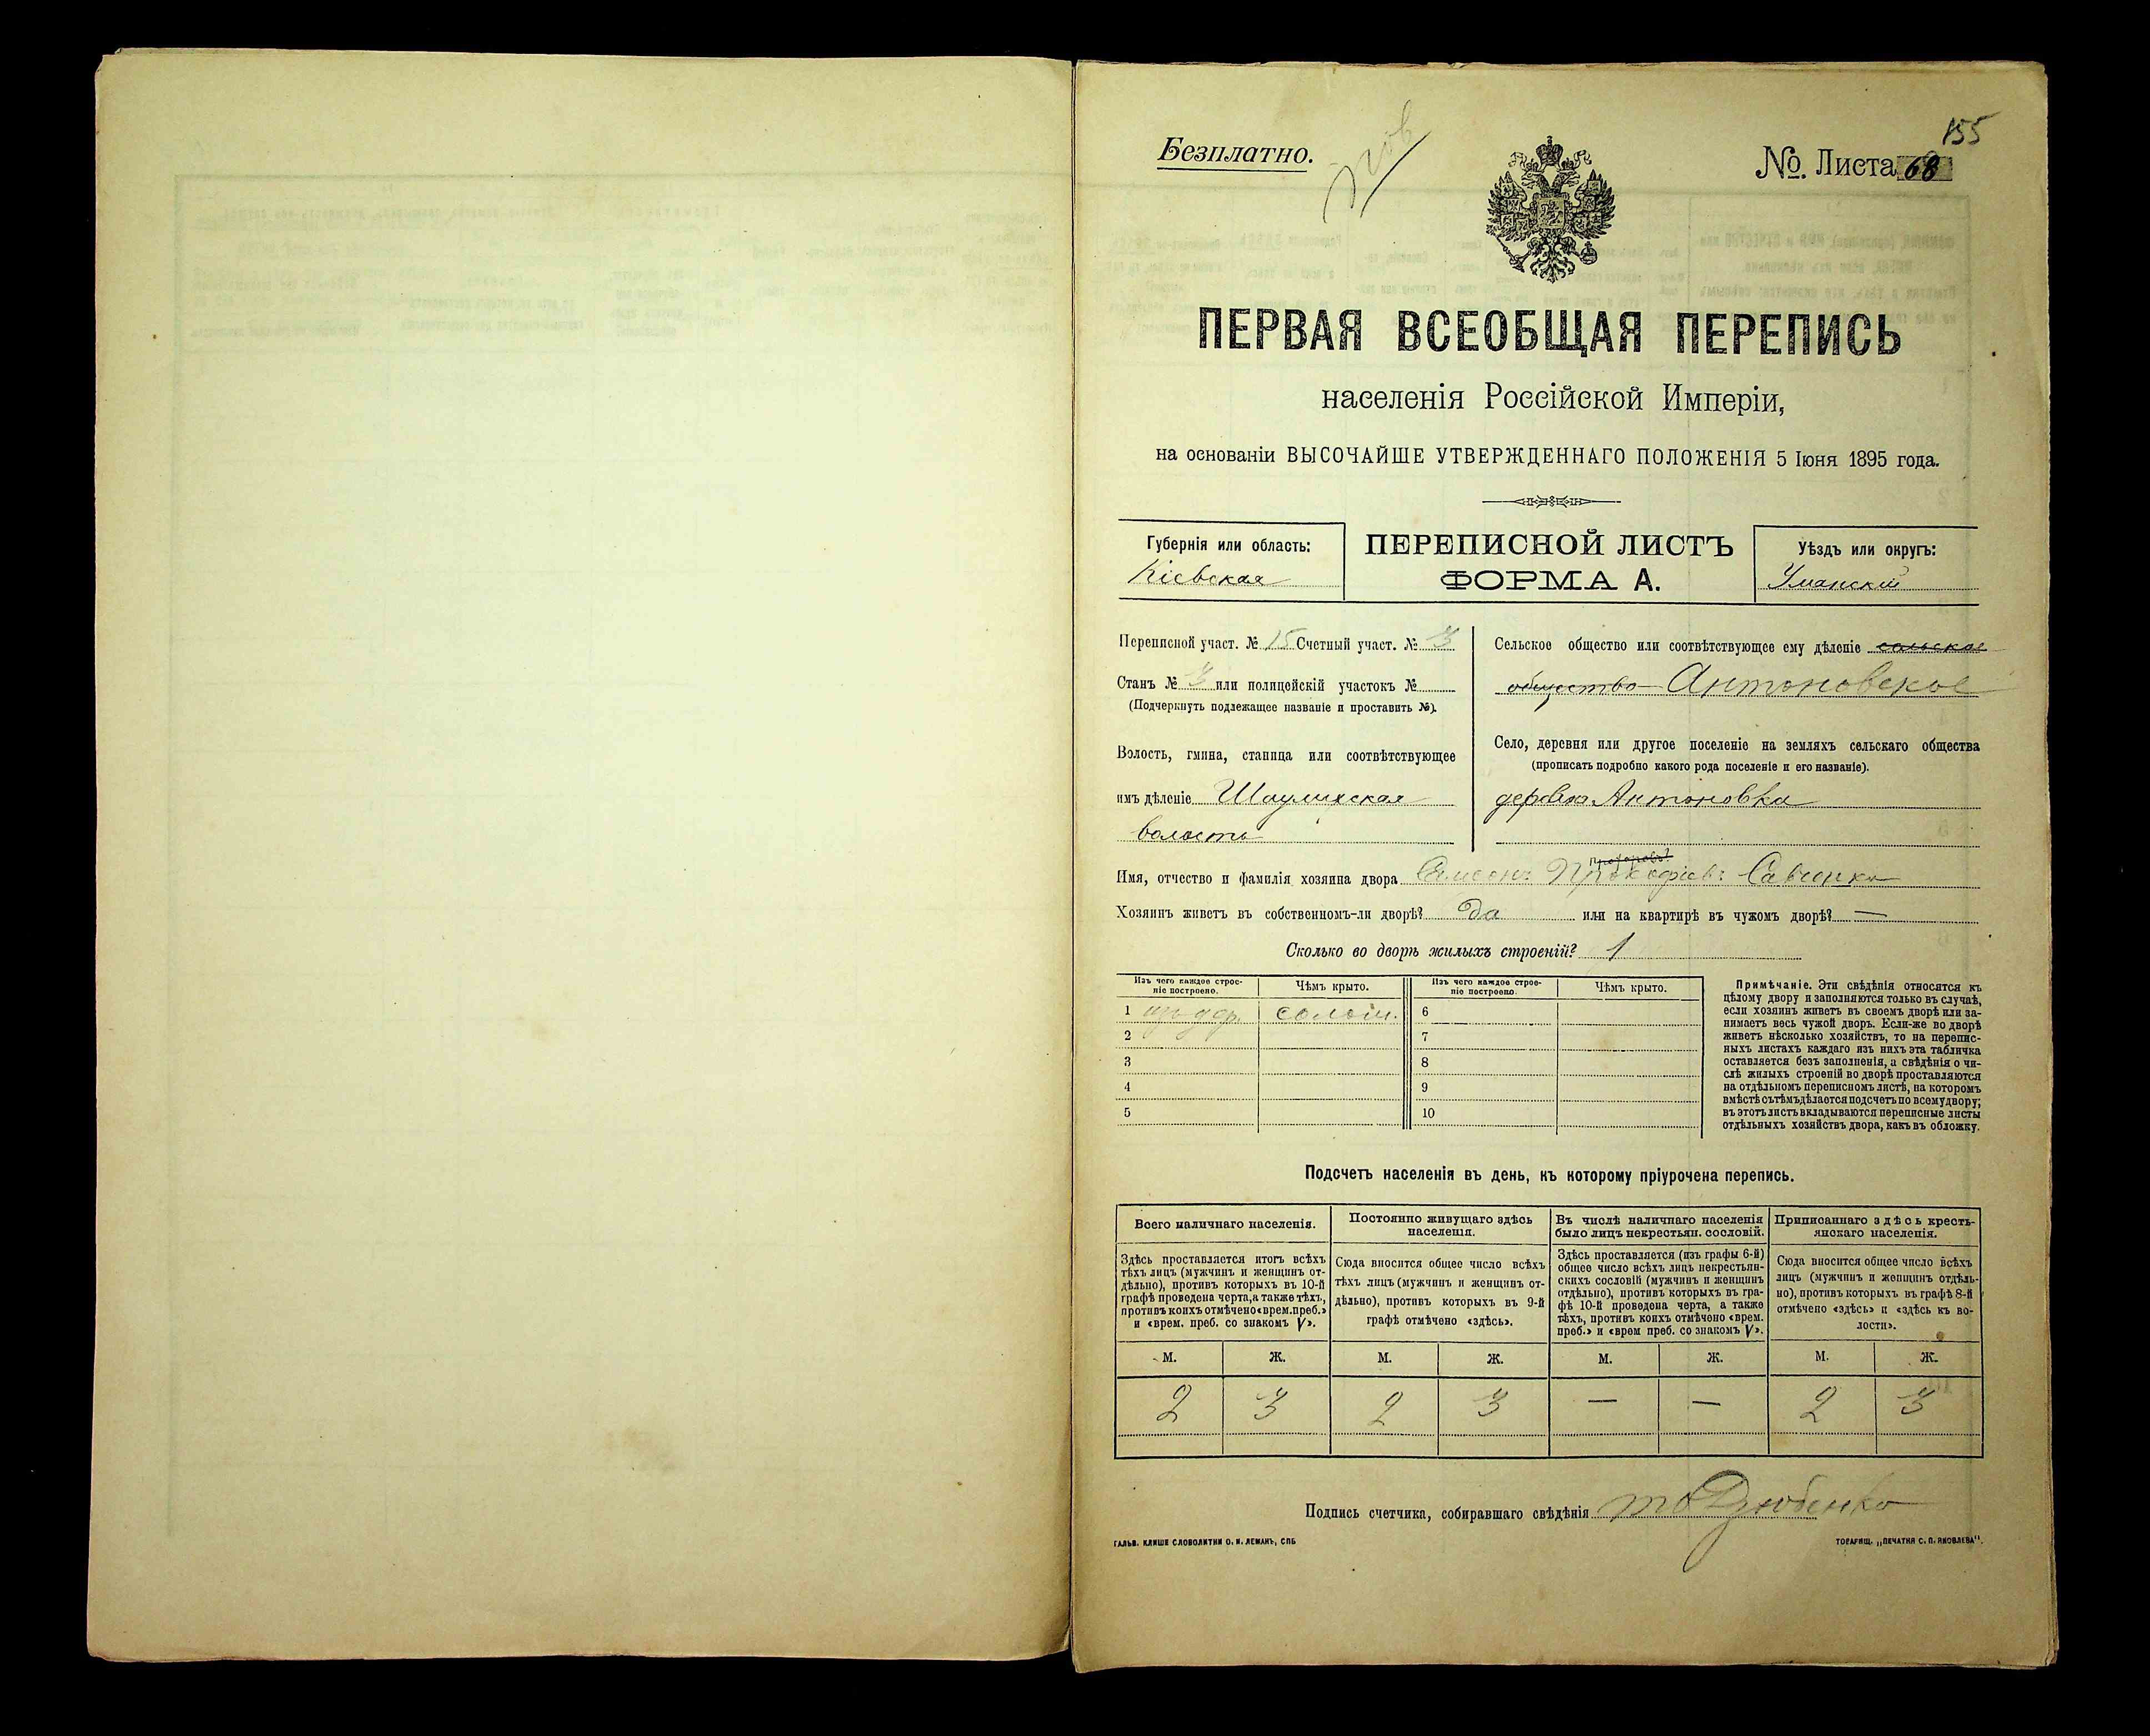 155
Безплатно.
№. Листа 68
ПЕРВАЯ ВСЕОБЩАЯ ПЕРЕПИСЬ
населенія Россійской Имперіи,
на основаніи ВЫСОЧАЙШЕ УТВЕРЖДЕННАГО ПОЛОЖЕНІЯ 5 Іюня 1895 года.
Губернія или область:
Кіевская
ПЕРЕПИСНОЙ ЛИСТЪ
ФОРМА А.
Уѣздъ или округъ:
Уманскій
Переписной участ. № 15 Счетный участ. № 3
Станъ № 3 или полицейскій участокъ №
(Подчеркнуть подлежащее названіе и проставить №).
Волость, гмина, станица или соотвѣтствующее
имъ дѣленіе Шаулихская
волость
Сельское общество или соотвѣтствующее ему дѣленіе сельское
общество Антоновское
Село, деревня или другое поселеніе на земляхъ сельскаго общества
(прописать подробно какого рода поселеніе и его названіе).
деревня Антоновка
Имя, отчество и фамилія хозяина двора Прокофіевъ Савченко
Хозяинъ живетъ въ собственномъ-ли дворѣ? Да или на квартирѣ въ чужомъ дворѣ? —
Сколько во дворѣ жилыхъ строеній? 1
Изъ чего каждое строе-
ніе построено.
Чѣмъ крыто.
Изъ чего каждое строе-
ніе построено.
Чѣмъ крыто.
1 изъ дер. солом. 6
2 7
3 8
4 9
5 10
Примѣчаніе. Эти свѣдѣнія относятся къ
цѣлому двору и заполняются только въ случаѣ,
если хозяинъ живетъ въ своемъ дворѣ или за-
нимаетъ весь чужой дворъ. Если-же во дворѣ
живетъ нѣсколько хозяйствъ, то на перепис-
ныхъ листахъ каждаго изъ нихъ эта табличка
оставляется безъ заполненія, а свѣдѣнія о чи-
слѣ жилыхъ строеній во дворѣ проставляются
на отдѣльномъ переписномъ листѣ, на которомъ
вмѣстѣ съ тѣмъ дѣлается подсчетъ по всему двору;
въ этотъ листъ вкладываются переписные листы
отдѣльныхъ хозяйствъ двора, какъ въ обложку.
Подсчетъ населенія въ день, къ которому пріурочена перепись.
Всего наличнаго населенія.
Здѣсь проставляется итогъ всѣхъ
тѣхъ лицъ (мужчинъ и женщинъ от-
дѣльно), противъ которыхъ въ 10-й
графѣ проведена черта, а также тѣхъ,
противъ коихъ отмѣчено «врем. преб.»
и «врем. преб. со знакомъ V».
Постоянно живущаго здѣсь
населенія.
Сюда вносится общее число всѣхъ
тѣхъ лицъ (мужчинъ и женщинъ от-
дѣльно), противъ которыхъ въ 9-й
графѣ отмѣчено «здѣсь».
Въ числѣ наличнаго населенія
было лицъ некрестьян. сословій.
Здѣсь проставляется (изъ графы 6-й)
общее число всѣхъ лицъ некрестьян-
скихъ сословій (мужчинъ и женщинъ
отдѣльно), противъ которыхъ въ гра-
фѣ 10-й проведена черта, а также
тѣхъ, противъ коихъ отмѣчено «врем.
преб.» и «врем преб. со знакомъ V».
Приписаннаго здѣсь кресть-
янскаго населенія.
Сюда вносится общее число всѣхъ
лицъ (мужчинъ и женщинъ отдѣль-
но), противъ которыхъ въ графѣ 8-й
отмѣчено «здѣсь» и «здѣсь къ во-
лости».
М. Ж. М. Ж. М. Ж. М. Ж.
2 3 2 3 — — 2 3
Подпись счетчика, собиравшаго свѣдѣнія Дзюбенко
ГАЛЬВ. КЛИШЕ СЛОВОЛИТНИ О. И. ЛЕМАНЪ, СПБ
ТОВАРИЩ. „ПЕЧАТНЯ С. П. ЯКОВЛЕВА".